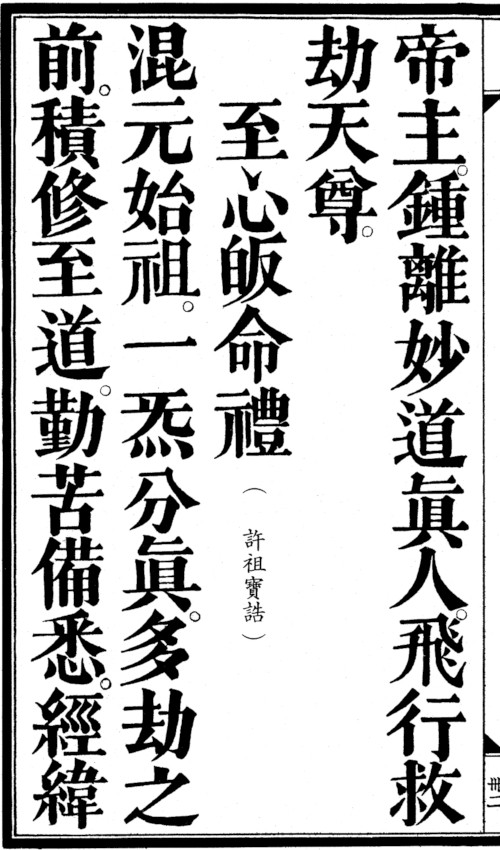 帝主。鍾離妙道眞人。飛行救
劫天尊。
至心皈命禮（許祖寶誥）
混元始祖。一炁分眞。多劫之
前。積修至道。勤苦備悉。經緯
卌二